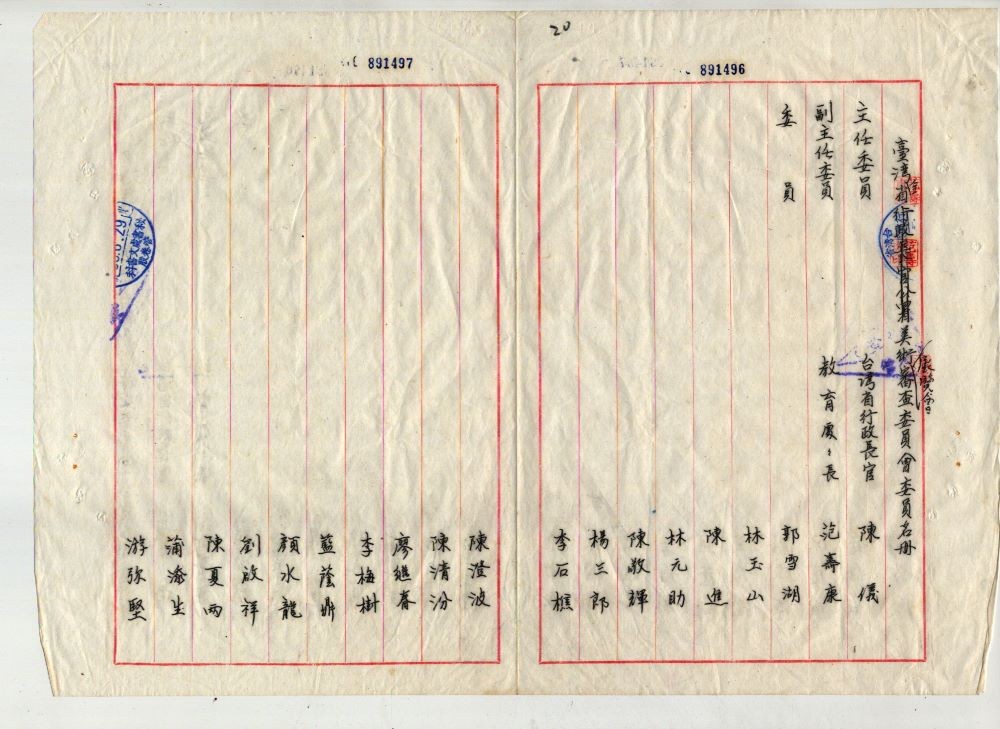 20
891496
臺灣省行政長官公署美術審查委員會委員名冊
展覽會
主任委員 台灣省行政長官 陳儀
副主任委員 教育處〻長 范壽康
委員 郭雪湖
林玉山
陳進
林元助
陳敬輝
楊三郎
李石樵
891497
陳澄波
陳清汾
廖繼春
李梅樹
藍蔭鼎
顏水龍
劉啟祥
陳夏雨
蒲添生
游弥堅